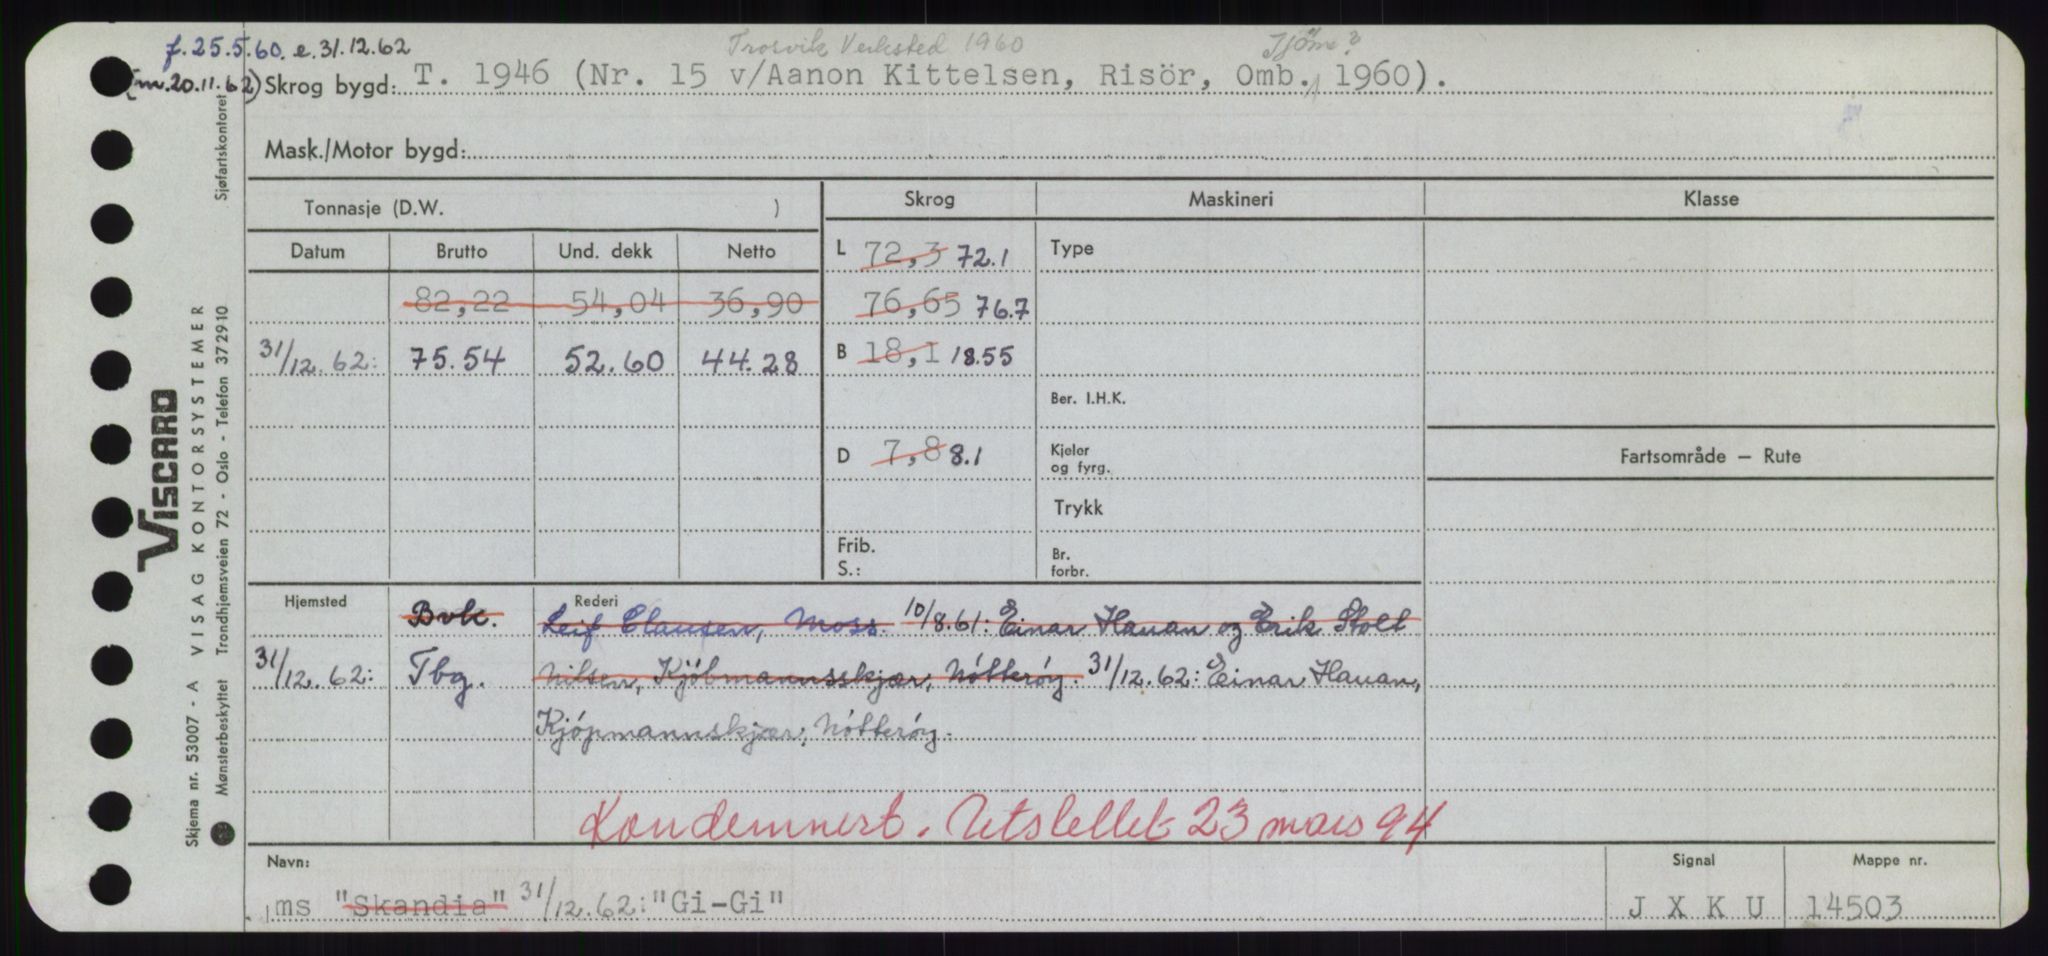 f. 25.5.60. e. 31.12.62 Trosvik Verksted 1960 Tjöme?
(m. 20.11.62) Skrog bygd: T. 1946 (Nr. 15 v/Aanon Kittelsen, Risör, Omb. 1960).
Mask./Motor bygd:
Tonnasje (D.W. ) Skrog Maskineri Klasse
Datum Brutto Und. dekk Netto L 72,3 72.1 Type
82,22 54,04 36,90 76,65 76.7
31/12.62: 75.54 52.60 44.28 B 18,1 18.55
Ber. I.H.K.
D 7,8 8.1 Kjeler og fyrg. Fartsområde — Rute
Trykk
Frib. Br.
S.: forbr.
Hjemsted Rederi
Bvk. Leif Clausen, Moss. 10/8.61: Einar Hauan og Erik Stolt
31/12.62: Tbg. Nilsen, Kjöbmannsskjær, Nötteröy. 31/12.62: Einar Hauan,
Kjöpmannskjær, Nötteröy.
Kondemnert. Utslettet 23 mars 94
Navn: Signal Mappe nr.
ms "Skandia" 31/12.62: "Gi-Gi" J X K U 14503
Sjøfartskontoret
VISCARD
Skjema nr. 53007 - A VISAG KONTORSYSTEMER
Mønsterbeskyttet Trondhjemsveien 72 - Oslo - Telefon 372910